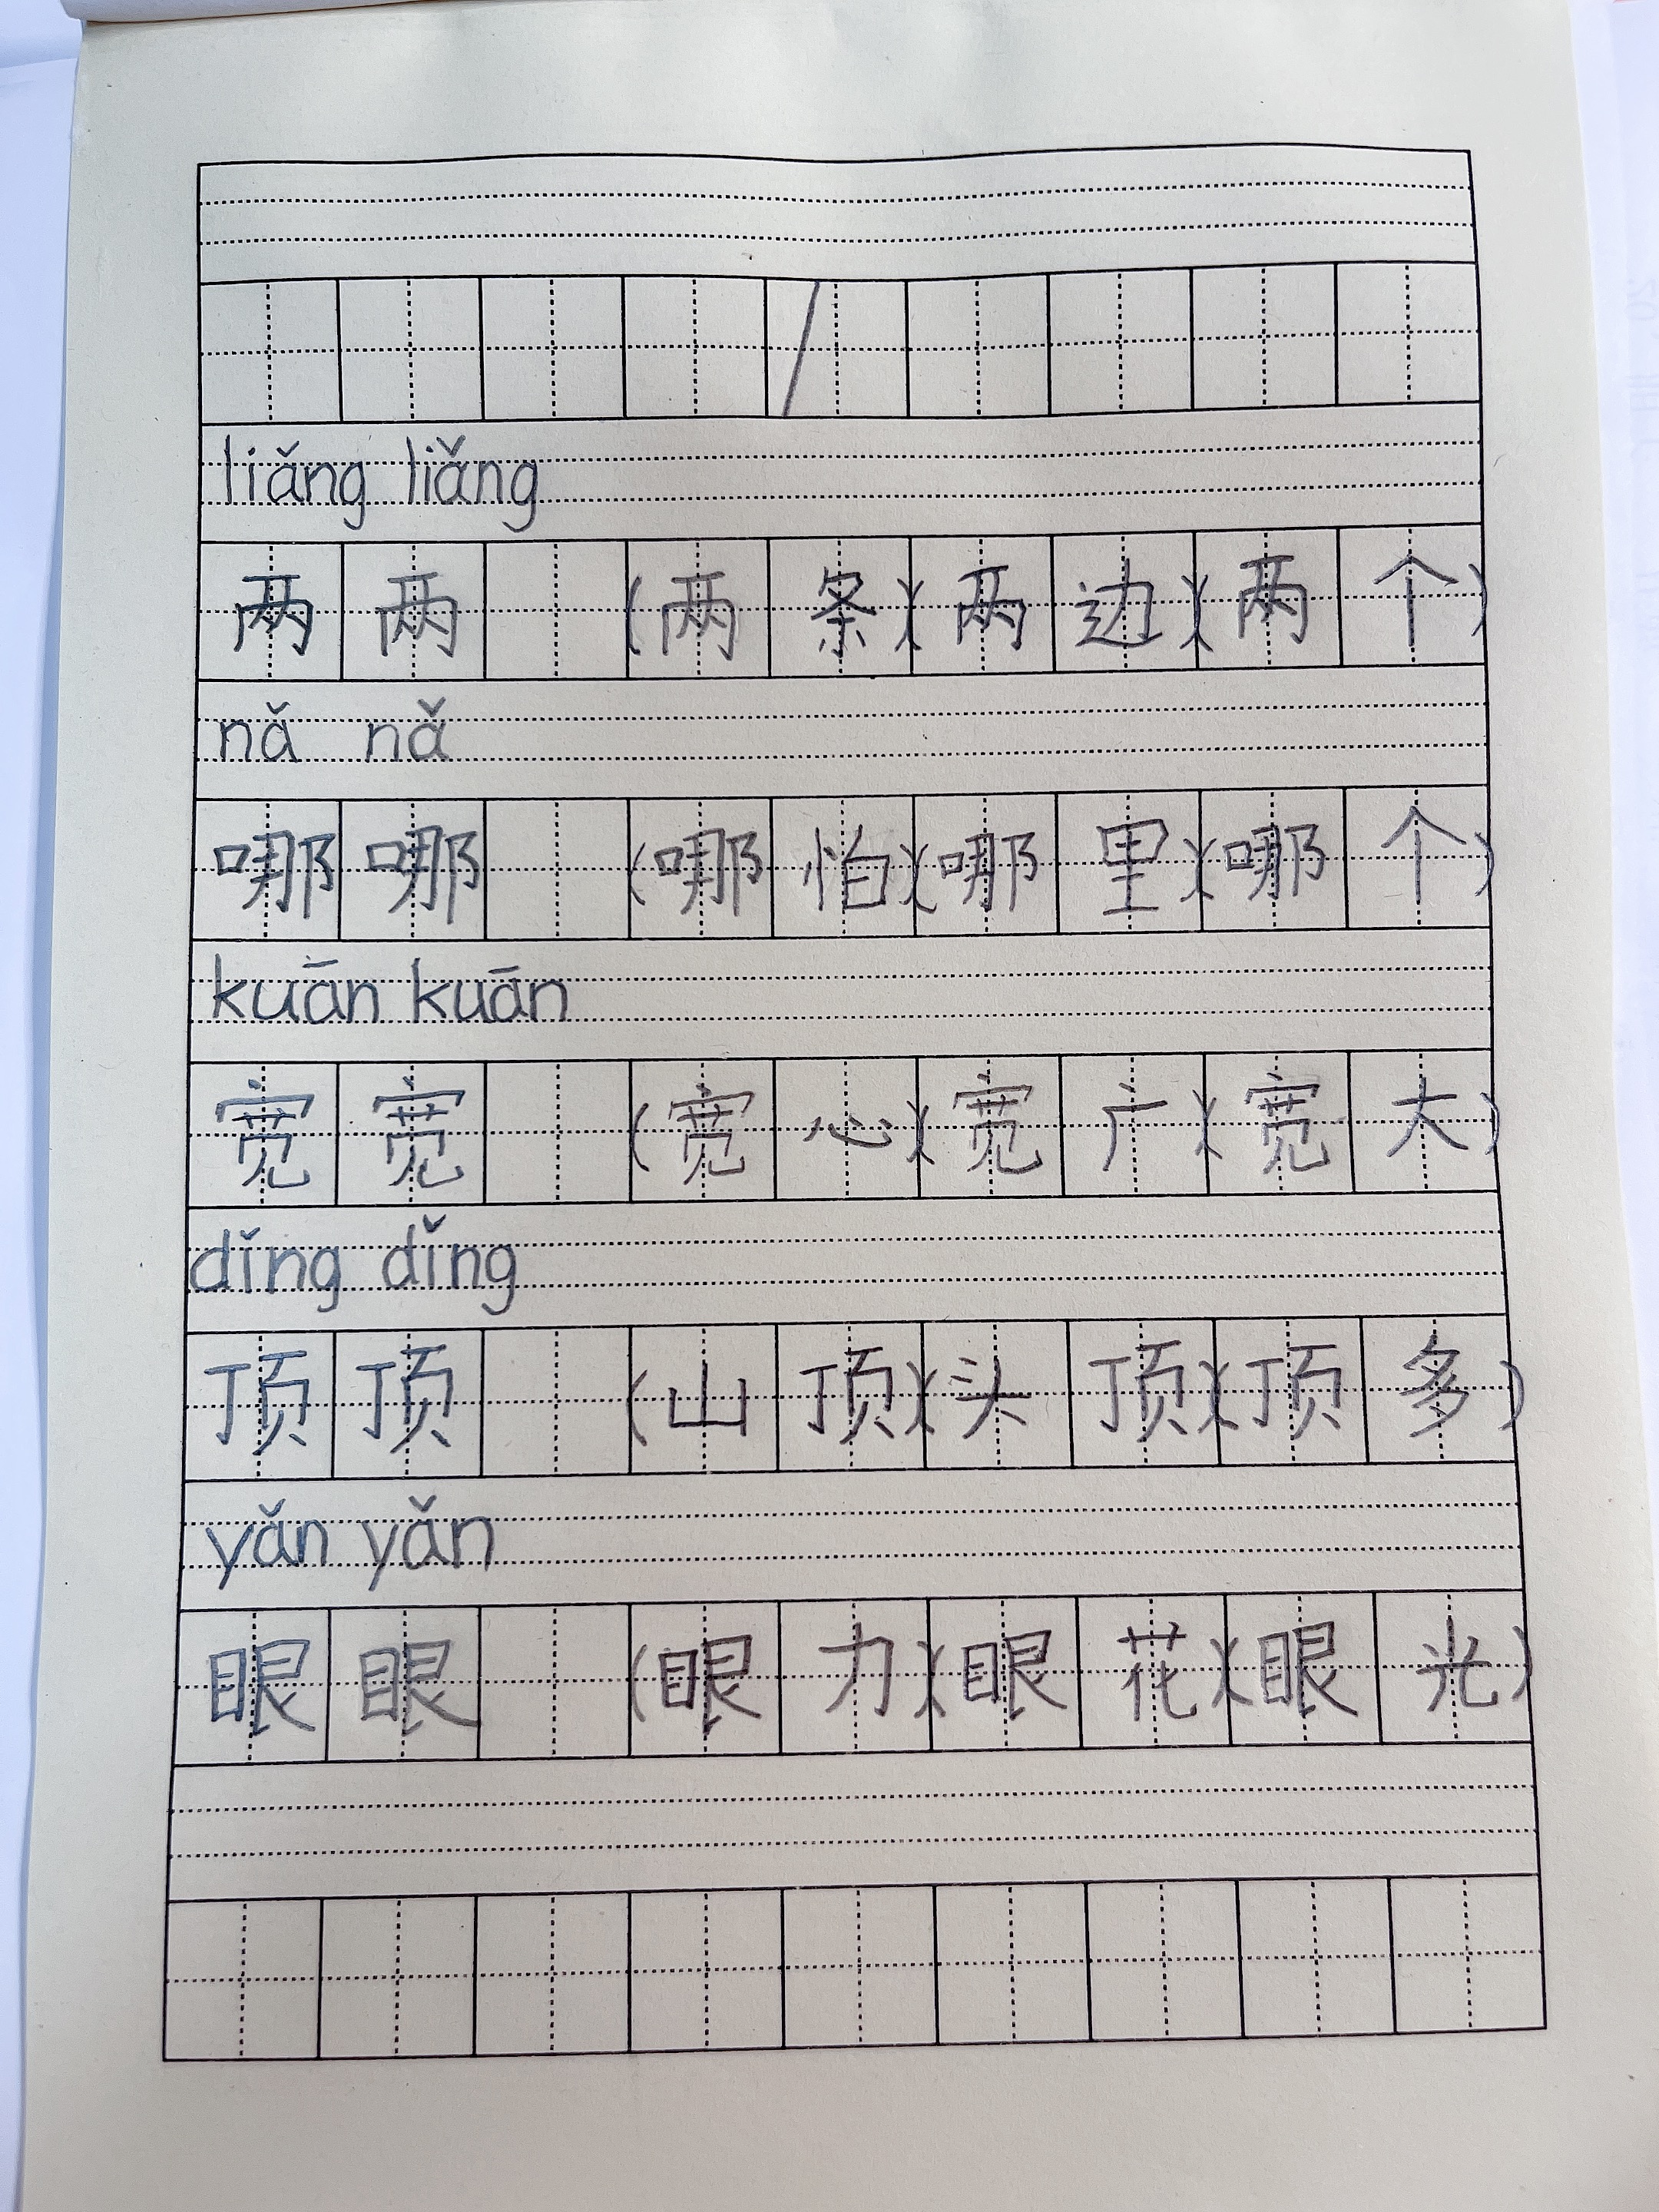 liǎng liǎng
两 两 (两 条)(两 边)(两 个)
nǎ nǎ
哪 哪 (哪 怕)(哪 里)(哪 个)
kuān kuān
宽 宽 (宽 心)(宽 广)(宽 大)
dǐng dǐng
顶 顶 (山 顶)(头 顶)(顶 多)
yǎn yǎn
眼 眼 (眼 力)(眼 花)(眼 光)